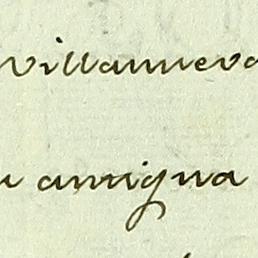 Villanueva
antigua